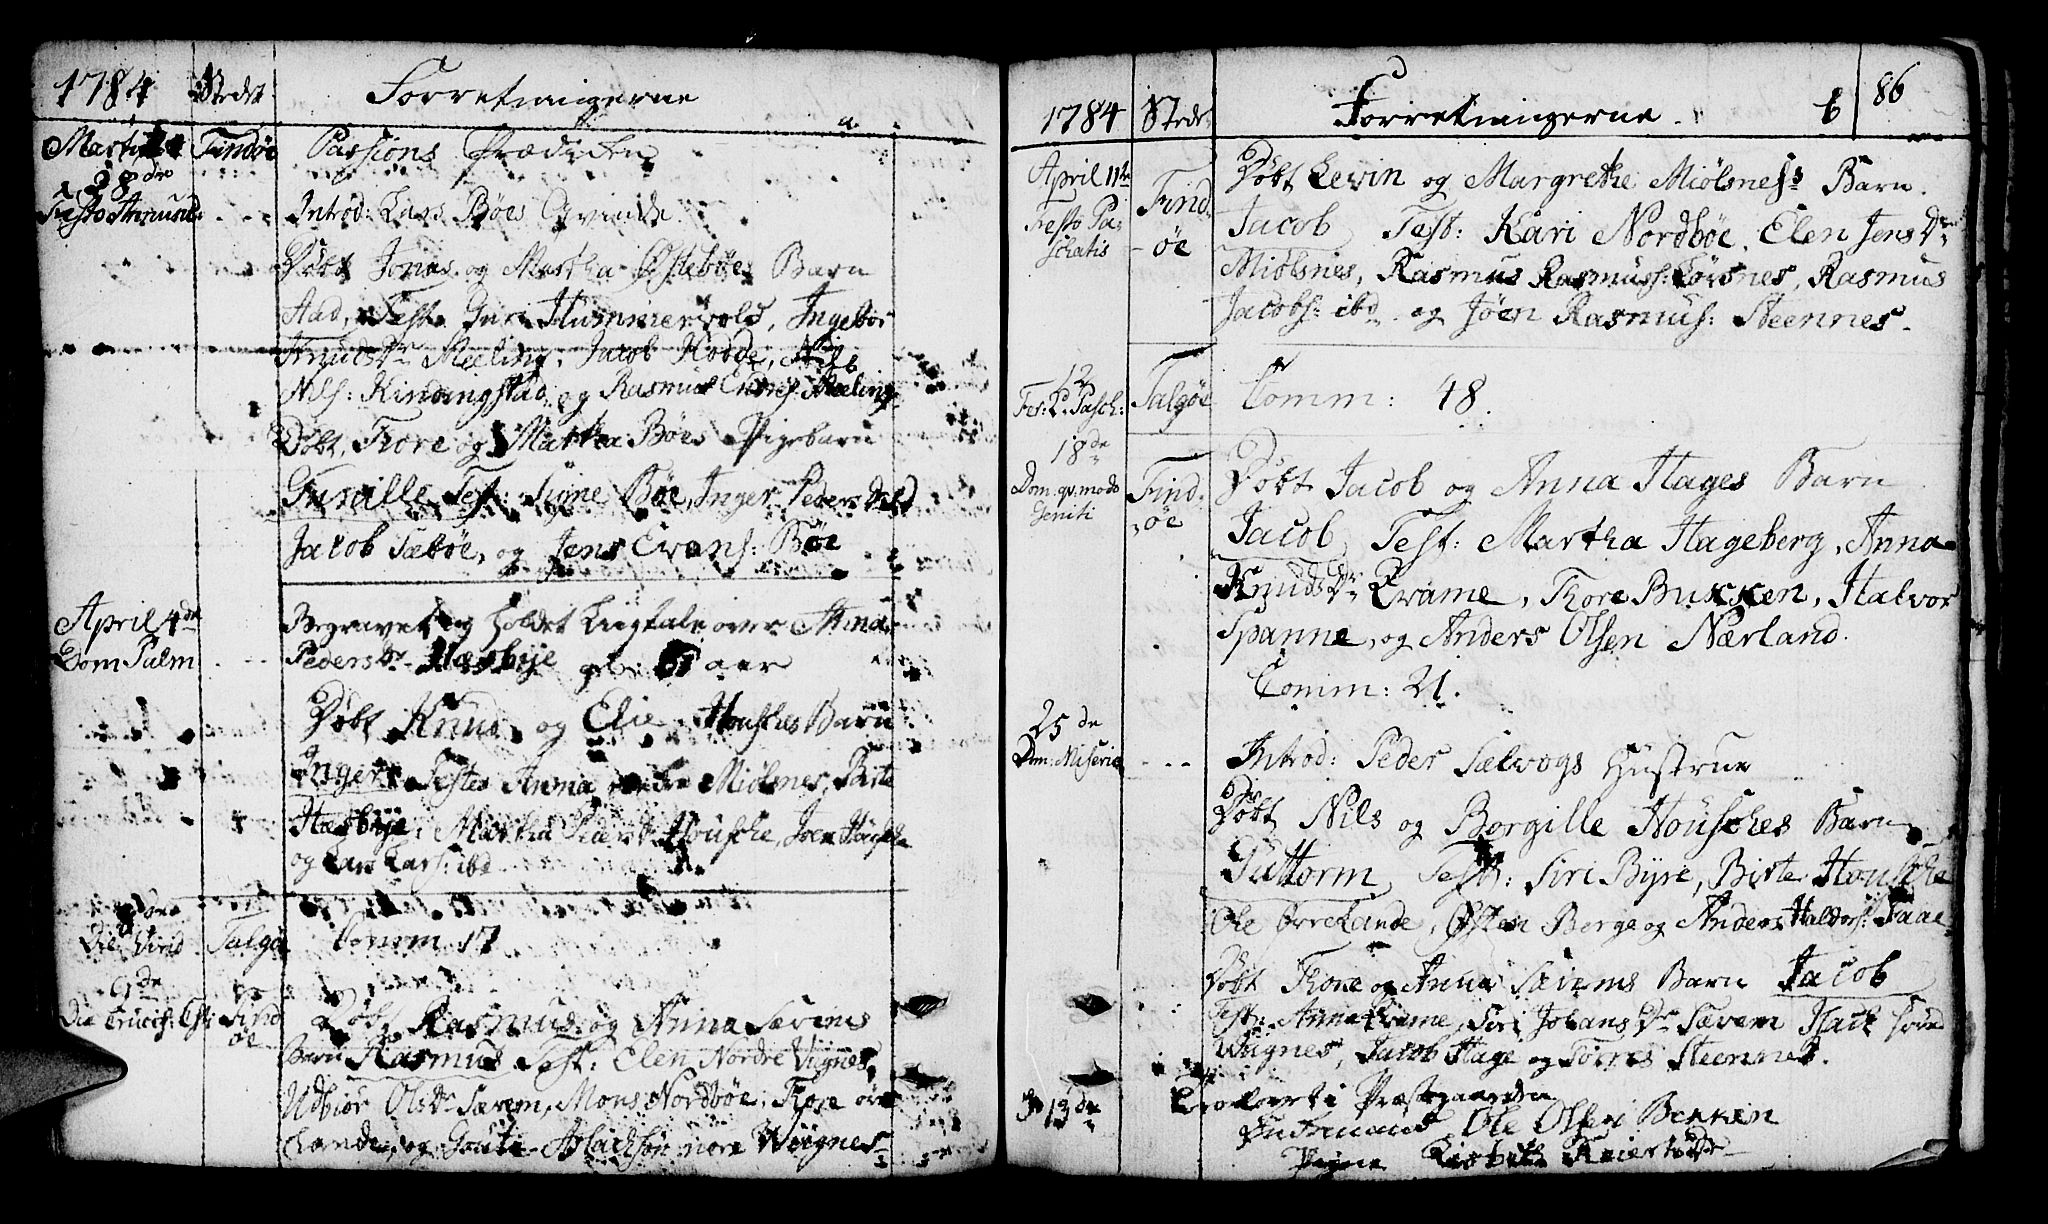 1784 Stedet Forretningerne
a.
Martii Findøe Passions Prædiken
28de
Festo Annunt. Introd: Lars Bøes Qvinde
Døbt Jonas og Martha Østebøes Barn
Aad, Test: Guri Hummervold, Ingebor
Knudsdr Meeling, Jacob Kodde, Nils
Nils: Kindingstad, og Rasmus Endres: Meeling
Døbt, Tore og Martha Bøes Pigebarn
Guraille, Test: Signe Bøe, Inger Peders Dr ibd
Jacob Sæbøe, og Jens Evans: Bøe
April 4de Begravet og holdet Liigtale over Anna
Dom Palm Pedersdr Hæsbye aar
Døbt Knud og Elie Houskes Barn
Inger, Testes Anna Miølsnes, Birte
Hæsbye, Martha Houske, Joen Houske
og Lars Lars: ibd
8de
Die Virid Talgøe Comm 17
9de
Die Crucif: Xsti Findøe Døbt Rasmus og Anna Særems
Barn Rasmus Test: Elen Nordre Vignes,
Udbiør Olsdr Særem, Mons Nordbøe, Tore øre
Lande, og Goute Aslachsøn nore Wignes
1784 Sted Forretningerne b 86
April 11te Find- Døbt Levin og Margrethe Miølsness Barn.
Festo Pa- øe Jacob Test: Kari Nordbøe, Elen Jens Dr
schatis Miølsnes, Rasmus Rasmuss: Torsnes, Rasmus
Jacobs: ibd og Joen Rasmus: Steennes.
12
Fer: 2. Pasch: Talgøe Comm: 48.
18de
Dom. qvimodo Find- Døbt Jacob og Anna Hages Barn
geniti øe Jacob Test: Martha Hageberg, Anna
Knuds Dr Qvame, Tore Bukken, Halvor
Spanne, og Anders Olsen Nærland.
Comm: 21.
25de
Dom: Miseric Introd: Peder Sælvogs Hustrue
Døbt Nils og Borgille Housches Barn
Guttorm Test: Siri Byre, Birte Houske
Ole Ørelande, Østen Berge og Anders Haldors: Faae
Døbt Tore og Anna Særems Barn Jacob
Test: Anna Qvame, Siri Johans Dr Særem Isach søre
Wignes, Jacob Hage og Torres Steennes.
13de Trolovet i Præstegaarden
Ole Olsen Bekken
Pigen Lisbeth Reiersdr